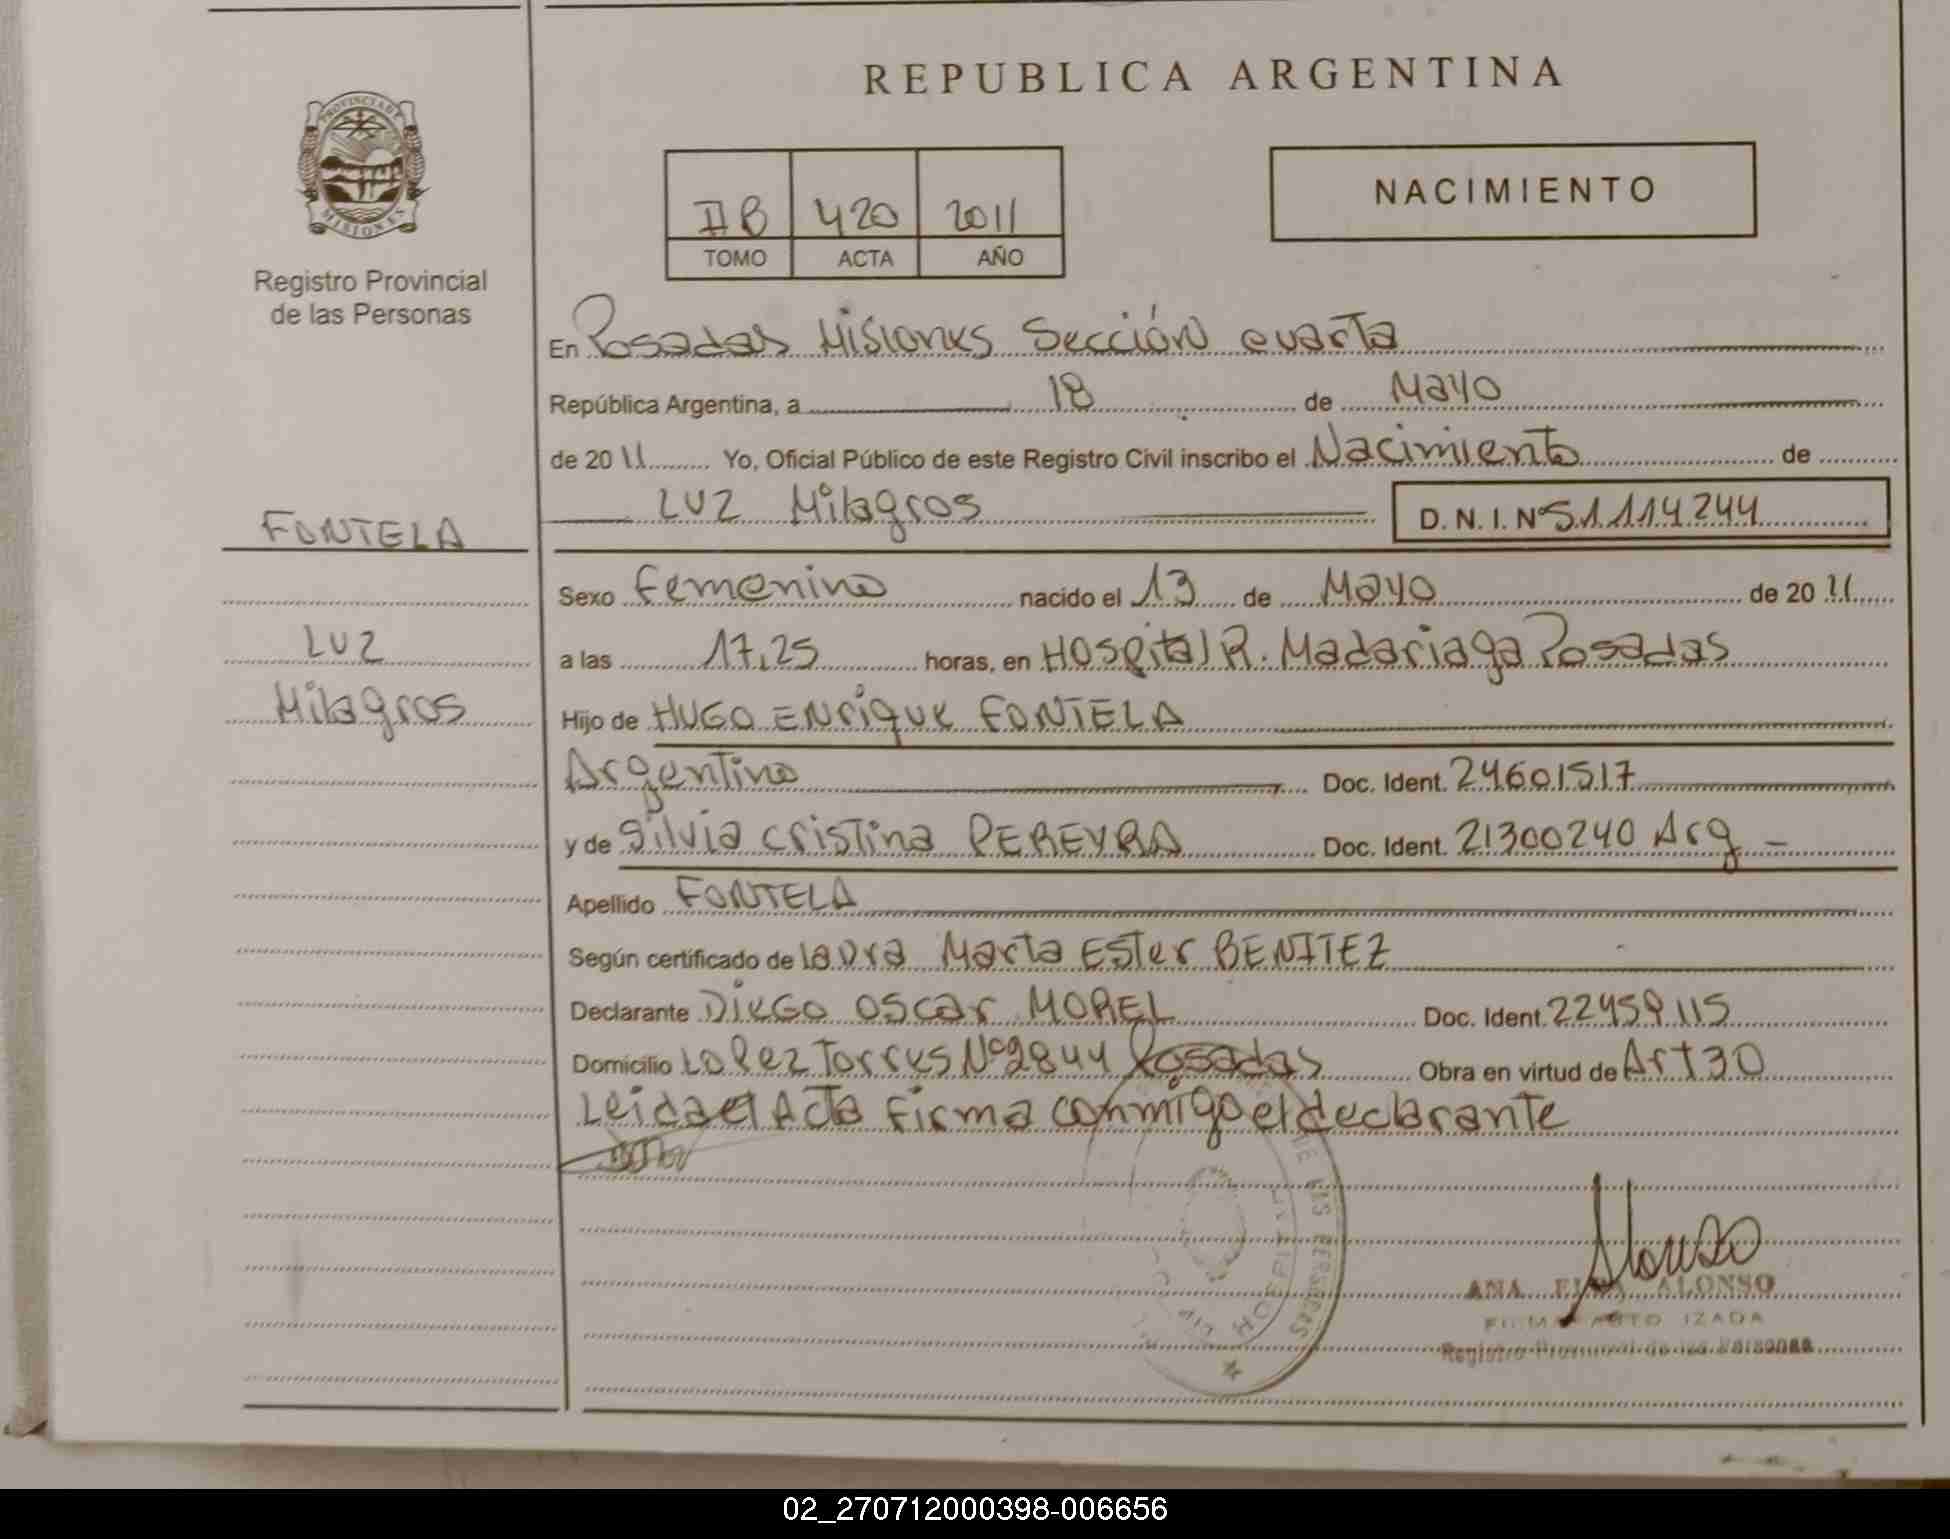 REPUBLICA ARGENTINA
PROVINCIA DE
MISIONES
Registro Provincial
de las Personas
IIB 420 2011
TOMO ACTA AÑO
NACIMIENTO
En Posadas Misiones Sección cuarta
República Argentina, a 18 de Mayo
de 2011 Yo, Oficial Público de este Registro Civil inscribo el Nacimiento de
LUZ Milagros D.N.I. Nº 51114244
FONTELA
LUZ
Milagros
Sexo Femenino nacido el 13 de Mayo de 2011
a las 17,25 horas, en Hospital R. Madariaga Posadas
Hijo de HUGO Enrique FONTELA
Argentino Doc. Ident. 24601517
y de Silvia Cristina PEREYRA Doc. Ident. 21300240 Arg -
Apellido FONTELA
Según certificado de Laura Marta Ester BENITEZ
Declarante Diego Oscar MOREL Doc. Ident. 22459115
Domicilio Lopez Torres Nº 2844 Posadas Obra en virtud de Art 30
Leida el Acta Firma conmigo el declarante
DE LAS PERSONAS
HOSPITAL
Alonso
ANA ALONSO
Registro Provincial de las Personas
02_270712000398-006656